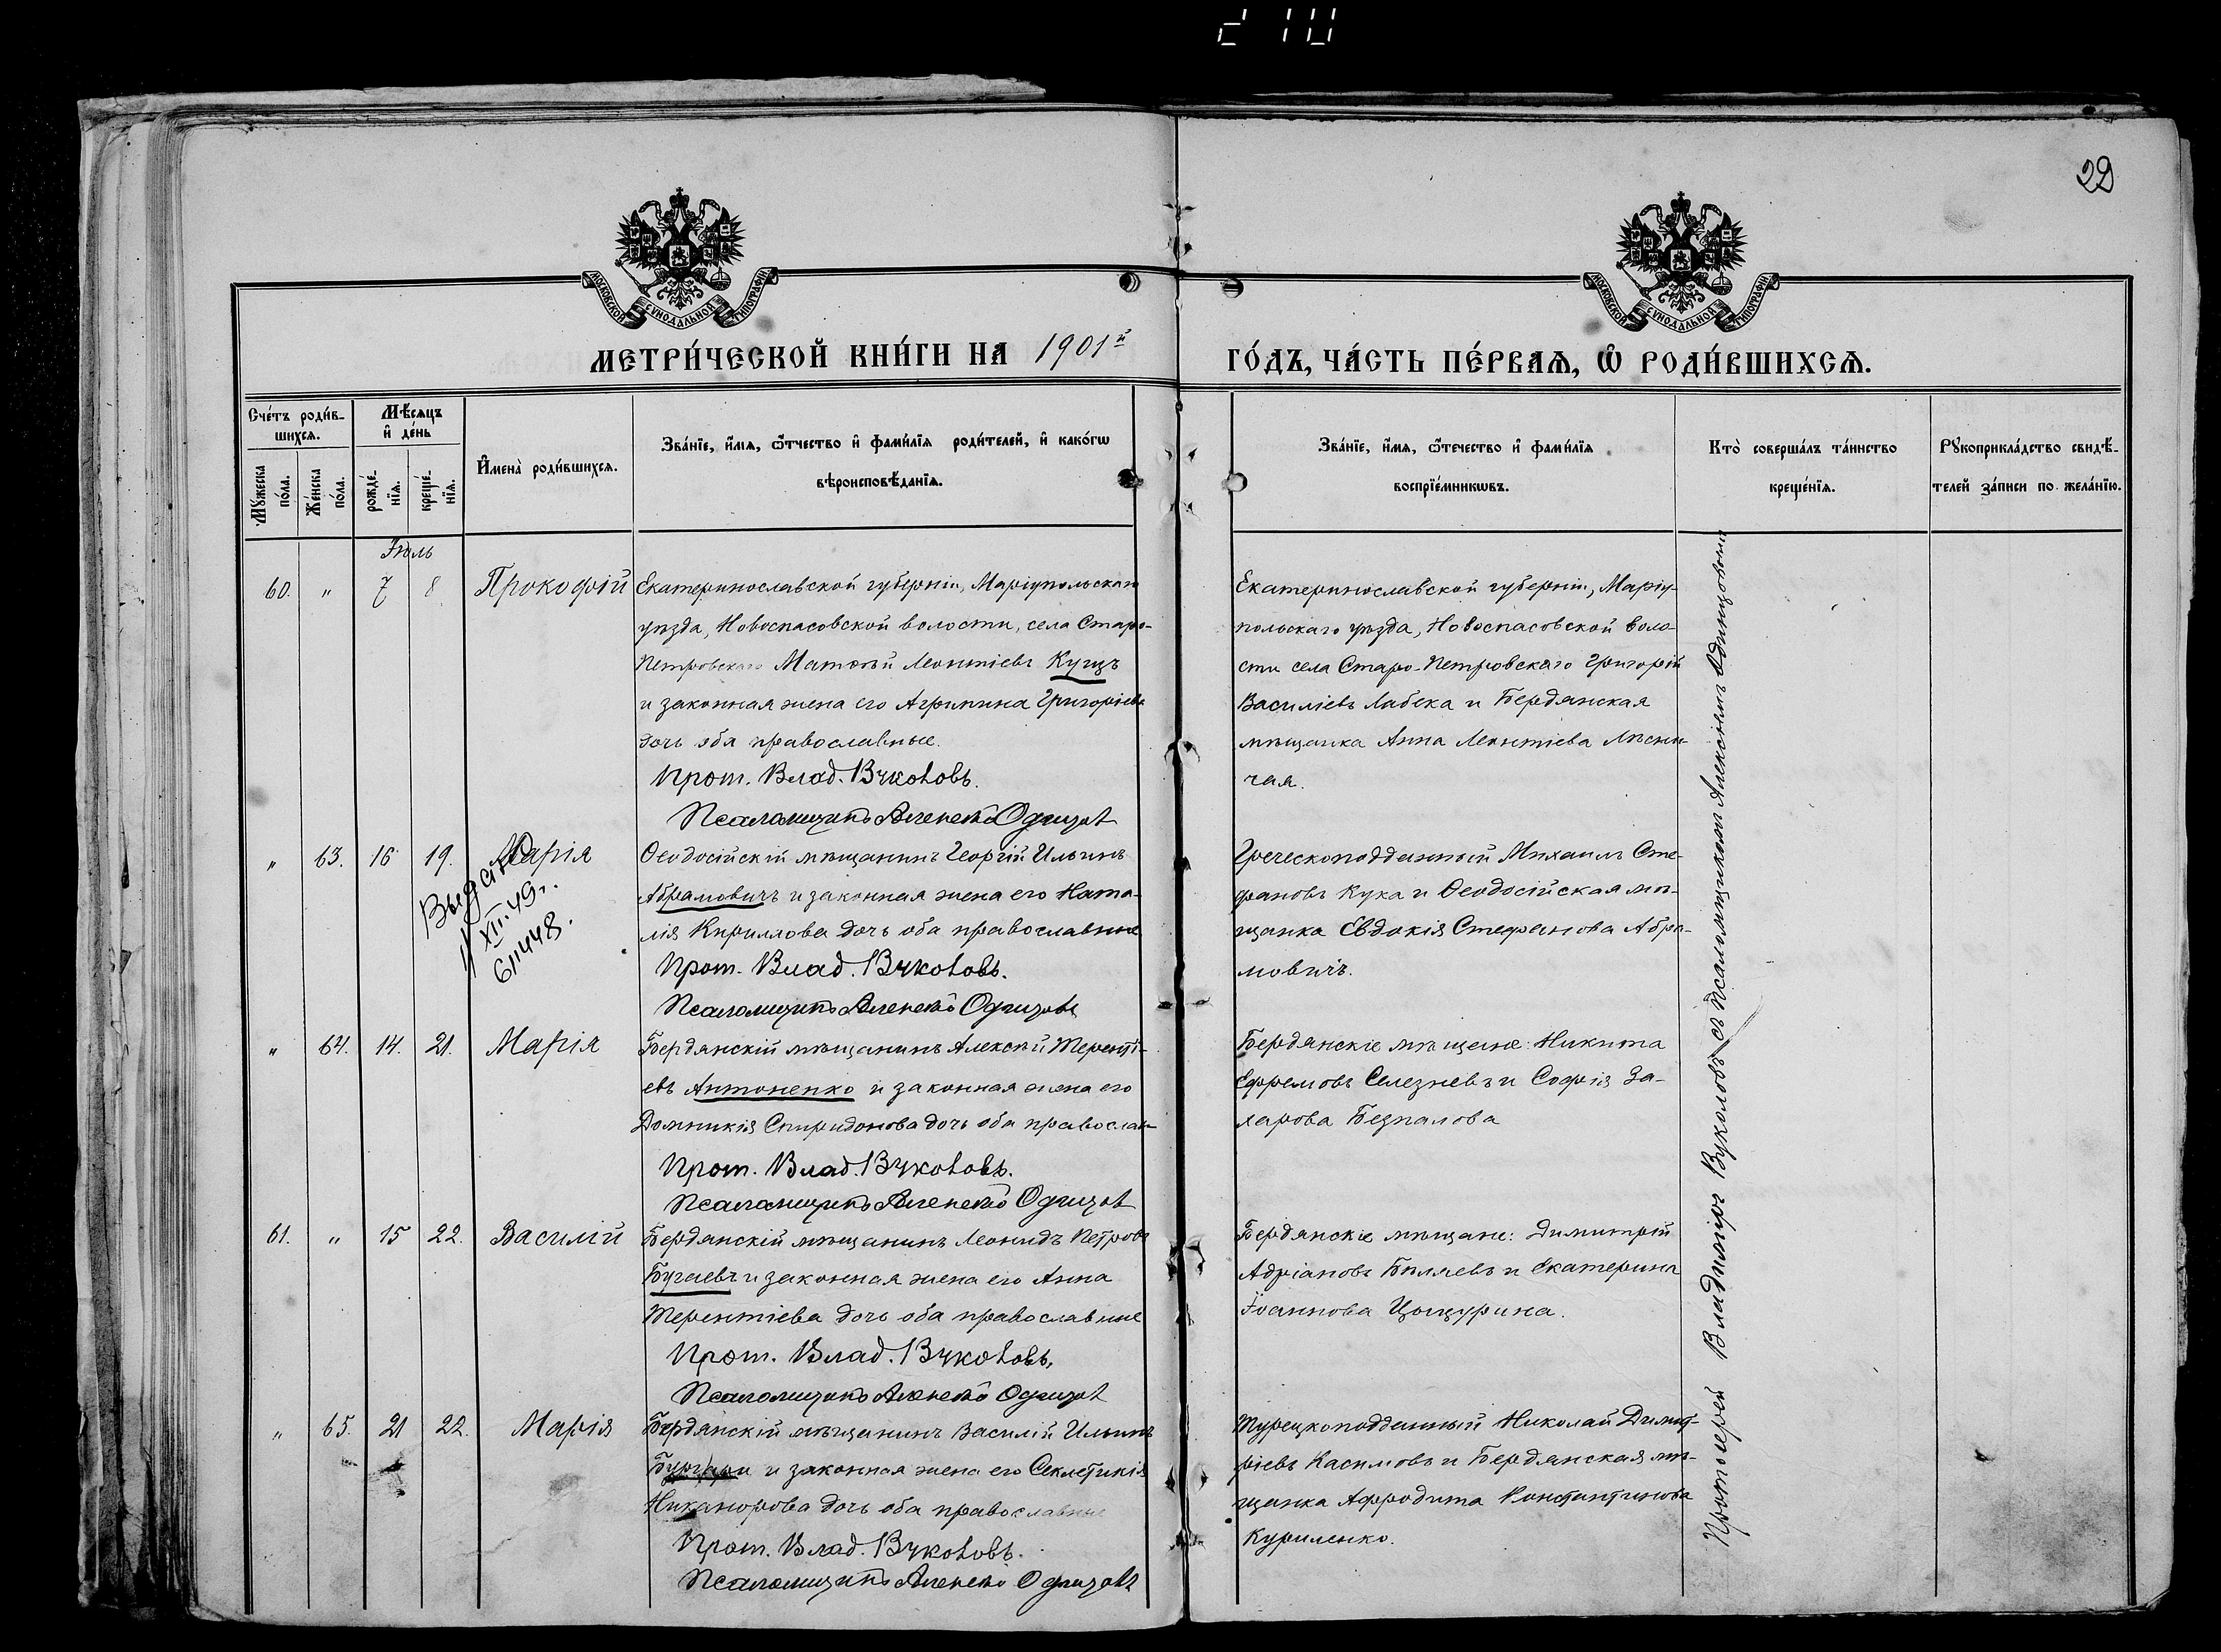 210
29
МОСКОВСКОЙ СѴНОДАЛЬНОЙ ТИПОГРАФІИ
МОСКОВСКОЙ СѴНОДАЛЬНОЙ ТИПОГРАФІИ
МЕТРИ́ЧЕСКОЙ КНИ́ГИ НА 1901й
ГО́ДЪ, ЧА́СТЬ ПЕ́РВАѦ, Ѽ РОДИ́ВШИХСѦ.
Сче́тъ роди́в-
шихсѧ.
Мѣ́сѧцъ
и҆ де́нь
Мꙋ́жеска
по́ла.
Же́нска
по́ла.
рожде́-
нїѧ.
креще́-
нїѧ.
И҆мена̀ роди́вшихсѧ.
Зва́нїе, и҆́мѧ, ѻ҆́тчество и҆ фами́лїѧ роди́телей, и҆ како́гѡ
вѣроисповѣ́данїѧ.
Зва́нїе, и҆́мѧ, ѻ҆́течество и҆ фами́лїѧ
воспрїе́мникѡвъ.
Кто̀ соверша́лъ та́инство
креще́нїѧ.
Рꙋкоприкла́дство свидѣ́-
телей за́писи по жела́нїю.
Іюль
60. " 7 8 Прокофій
Екатеринославской губерніи, Маріупольскаго
уѣзда, Новоспасовской волости, села Старо-
Петровскаго Матѳѣй Леонтіевъ Куцъ
и законная жена его Агрипина Григоріева
дочь оба православные.
Прот. Влад. Вуколовъ.
Псаломщикъ Алексѣй Одинцовъ
Екатеринославской губерніи, Маріу-
польскаго уѣзда, Новоспасовской воло-
сти села Старо-Петровскаго Григорій
Василіевъ Лабека и Бердянская
мѣщанка Анна Леонтіева Лѣсни-
чая.
" 63. 16 19. Марія
Выдано
11 XII.49г.
611448.
Ѳеодосійскій мѣщанинъ Георгій Ильинъ
Абрамовичъ и законная жена его Ната-
лія Кириллова дочь оба православные
Прот. Влад. Вуколовъ.
Псаломщикъ Алексѣй Одинцовъ
Греческоподданный Михаилъ Сте-
фановъ Кука и Ѳеодосійская мѣ-
щанка Евдокія Стефанова Абра-
мовичъ.
" 64. 14. 21. Марія
Бердянскій мѣщанинъ Алексѣй Теренті-
евъ Антоненко и законная жена его
Домникія Спиридонова дочь оба православ-
Прот. Влад. Вуколовъ.
Псаломщикъ Алексѣй Одинцовъ
Бердянскіе мѣщане: Никита
Ефремовъ Селезневъ и Софія За-
харова Безпалова
61. " 15 22. Василій
Бердянскій мѣщанинъ Леонидъ Петровъ
Бугаевъ и законная жена его Анна
Терентіева дочь оба православные
Прот. Влад. Вуколовъ.
Псаломщикъ Алексѣй Одинцовъ
Бердянскіе мѣщане: Димитрій
Адріановъ Бѣляевъ и Екатерина
Іоаннова Цыцурина.
" 65. 21 22. Марія
Бердянскій мѣщанинъ Василій Ильинъ
и законная жена его Секлетикія
Никанорова дочь оба православные
Прот. Влад. Вуколовъ.
Псаломщикъ Алексѣй Одинцовъ
Турецкоподданный Николай Димит-
ріевъ Касимовъ и Бердянская мѣ-
щанка Афродита Константинова
Куриленко.
Протоіерей Владиміръ Вуколовъ съ псаломщикомъ Алексѣемъ Одинцовымъ